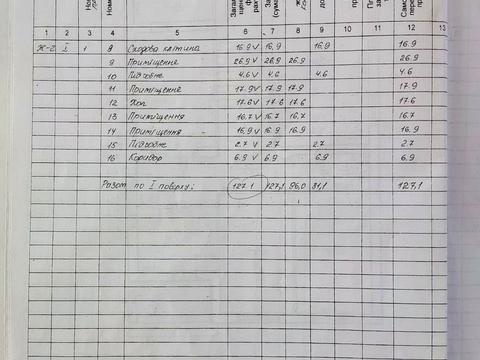 1 2 3 4 5 6 7 8 9 10 11 12 13
ж-2 I 1 8 Сходова клітина 16.9 V 16,9 16,9 16.9
9 Приміщення 26.9 V 26,9 26.9 26.9
10 Підсобне 4.6 V 4.6 4.6 4.6
11 Приміщення 17.9 V 17.9 17.9 17.9
12 Хол 17.6 V 17.6 17.6 17.6
13 Приміщення 16.7 V 16.7 16.7 16.7
14 Приміщення 16.9 V 16.9 16.9 16.9
15 Підсобне 2.7 V 2.7 2.7 2.7
16 Коридор 6.9 V 6.9 6.9 6.9
Разом по I поверху: 127.1 127,1 96,0 31,1 127,1